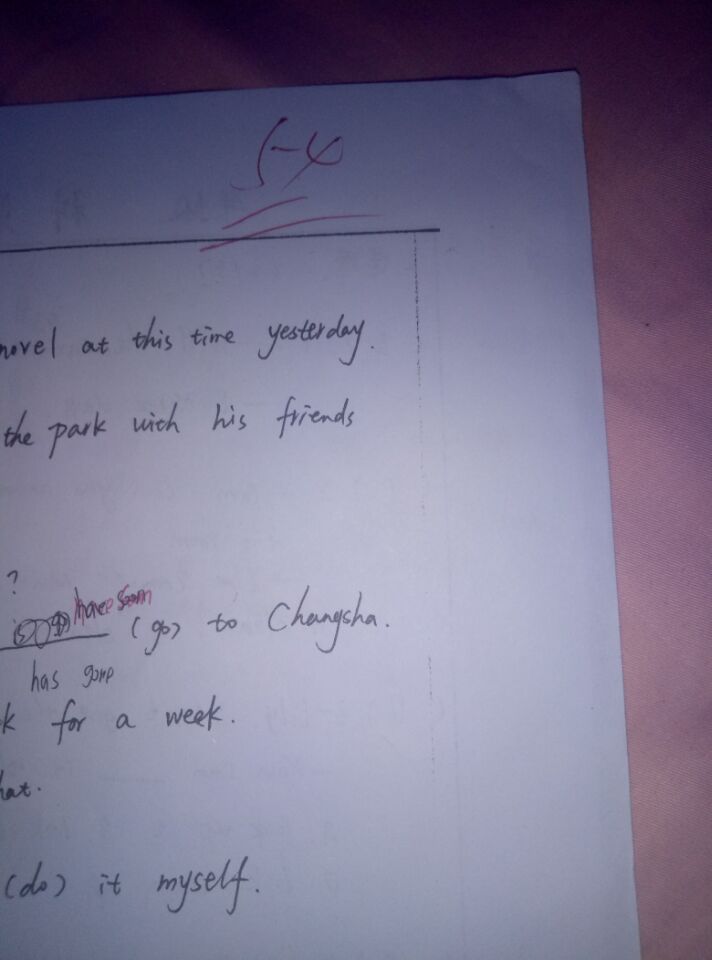 5-4
novel at this time yesterday.
the park with his friends
?
have
(go) to Changsha.
has gone
k for a week.
hat.
(do) it myself.